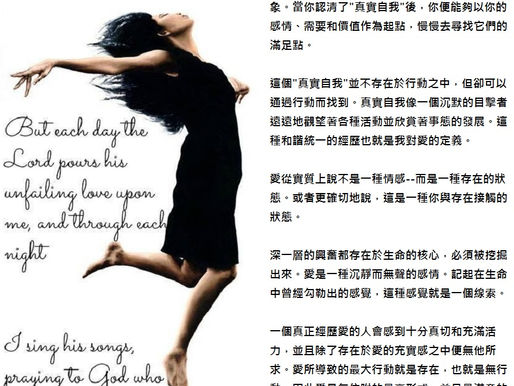 But each day the
Lord pours his
unfailing love upon
me, and through each
night
I sing his songs,
praying to God who
象。當你認清了"真實自我"後，你便能夠以你的
感情、需要和價值作為起點，慢慢去尋找它們的
滿足點。
這個"真實自我"並不存在於行動之中，但卻可以
通過行動而找到。真實自我像一個沉默的目擊者
遠遠地觀望著各種活動並欣賞著事態的發展。這
種和諧統一的經歷也就是我對愛的定義。
愛從實質上說不是一種情感--而是一種存在的狀
態。或者更確切地說，這是一種你與存在接觸的
狀態。
深一層的興奮都存在於生命的核心，必須被挖掘
出來。愛是一種沉靜而無聲的感情。記起在生命
中曾經勾勒出的感覺，這種感覺就是一個線索。
一個真正經歷愛的人會感到十分真切和充滿活
力，並且除了存在於愛的充實感之中便無他所
求。愛所導致的最大行動就是存在，也就是無行